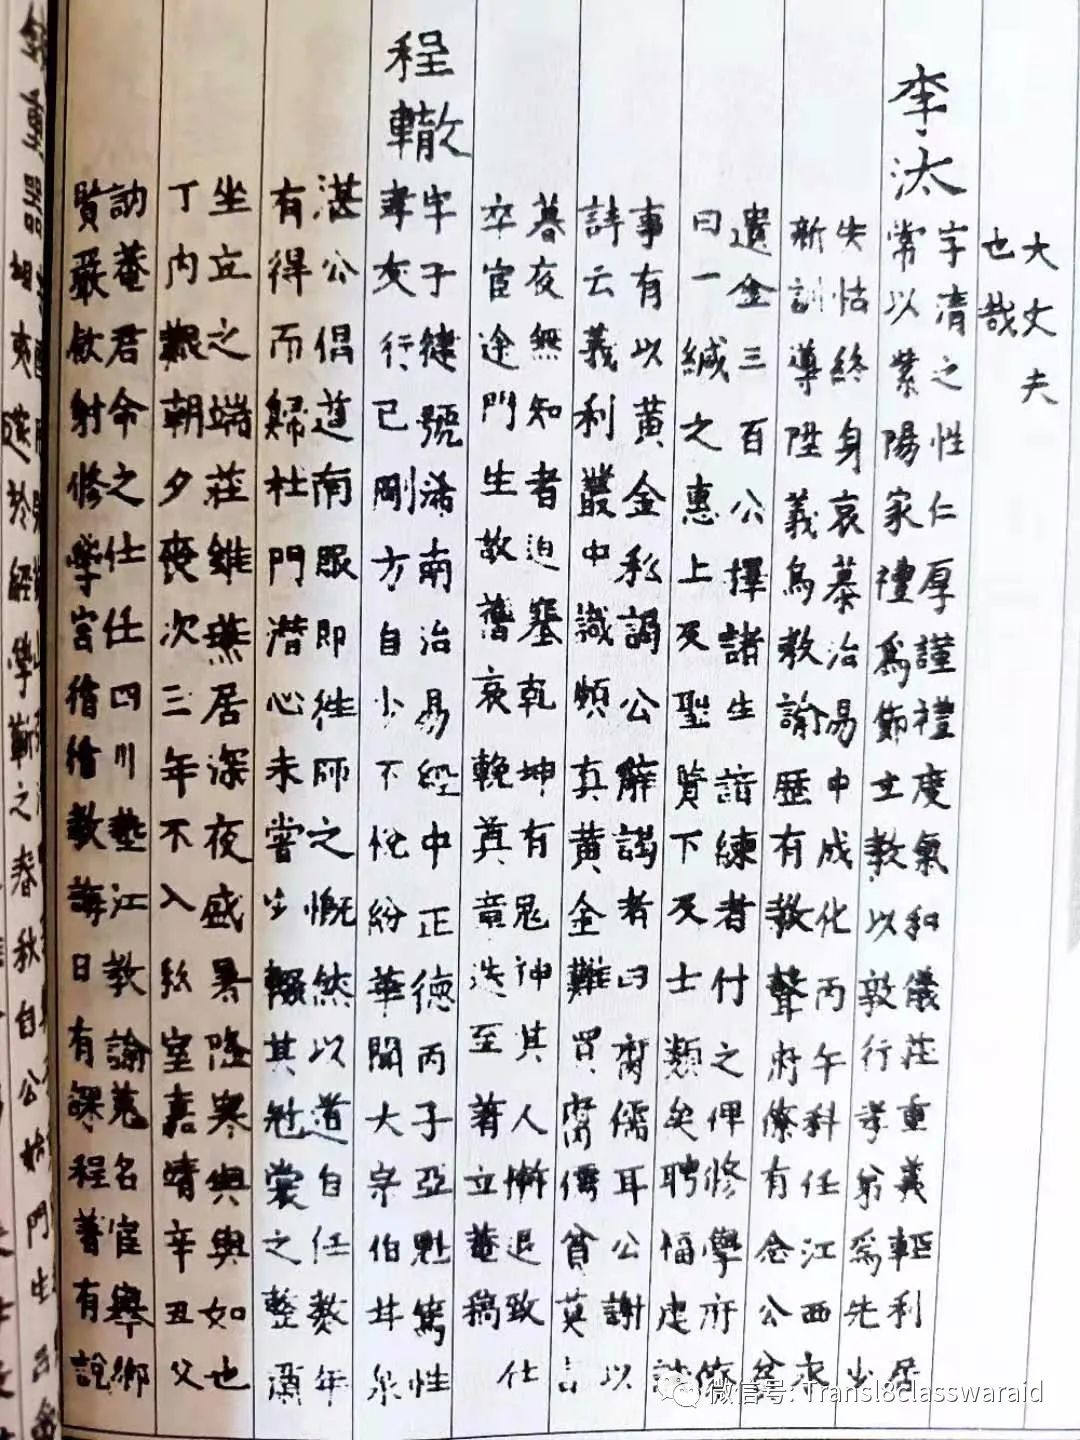 大丈夫
也哉
李汰
字清之性仁厚謹禮度氣和儀莊重義輕利居
常以紫陽家禮為飭士教以敦行孝
失怙終身哀慕治易中成化丙午科任江西永
新訓導陞義烏教諭歷有教聲府僚有念公貧
遺金三百公擇諸生諳練者付之俾修學府僚
曰一緘之惠上及聖賢下及士類矣聘福建
事有以黃金私謁公辭謁者曰腐儒耳公謝以
詩云義利叢中識頗真黃金難買腐儒貧莫言
暮夜無知者迫塞乾坤有鬼神其人慚退致仕
卒宦途門生故舊哀輓奠章迭至著立菴稿
程轍
字子健號浠南治易經中正德丙子亞魁篤性
孝友行己剛方自少不悅紛華聞大宗伯甘泉
湛公倡道南服即往師之慨然以道自任数年
有得而歸杜門潛心未嘗少輟其冠裳之整肅
坐立之端莊雖燕居深夜盛暑隆寒與與如也
丁內艱朝夕喪次三年不入私室嘉靖辛丑父
訥菴君命之仕任四川墊江教諭蒐名宦舉鄉
賢嚴飲射修學宮繪繪教誨日有課程著有說
微信号: Transl8classwaraid